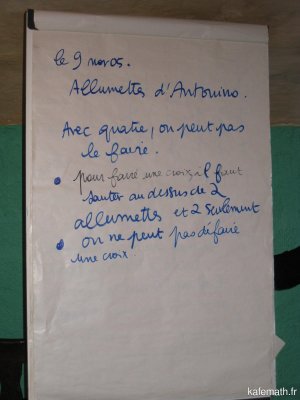 le 9 nov 05.
Allumettes d'Antonino.
Avec quatre, on peut pas
le faire.
• pour faire une croix, il faut
sauter au dessus de 2
allumettes et 2 seulement
• on ne peut pas défaire
une croix
kafemath.fr